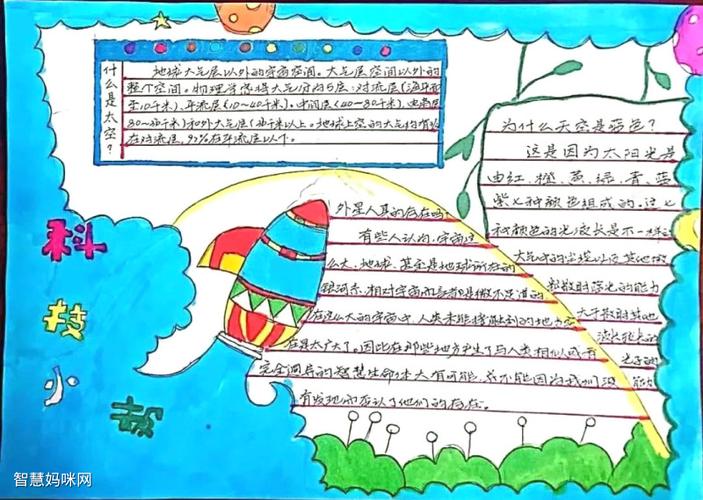 科
技
小
报
什么是太空？
地球大气层以外的宇宙空间。大气层空间以外的
整个空间。物理学家将大气分为5层：对流层(海平面
至10千米)、平流层(10~40千米)、中间层(40~80千米)、电离层
在对流层，97%在平流层以下。
外星人真的存在吗
有些人认为，宇宙这
么大，地球，甚至是地球所在的
银河系，相对宇宙而言都是微不足道的
在这么大的宇宙中，人类未能接触到的地方
在是太广大了。因此在那些地方产生了与人类相似或者
完全调异的智慧生命体大有可能，我不能因为我们没
有发现而否认了他们的存在。
为什么天空是蓝色？
这是因为太阳光是
由红、橙、黄、绿、青、蓝
紫七种颜色组成的，这七
种颜色的光波长是不一样的
大气中的尘埃以及其他微
粒散射蓝光的能力
大于散射其他
波长较长的
光子的
智慧妈咪网